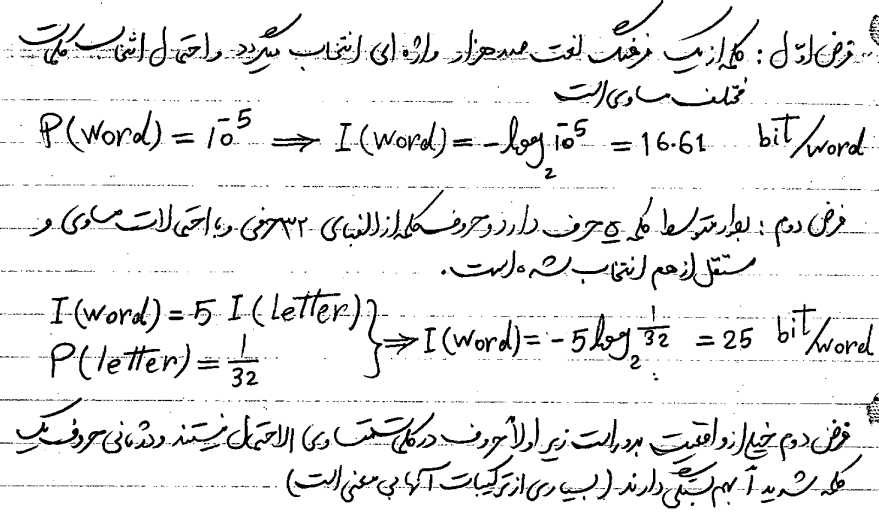 فرض اوّل : کلمه از یک فرهنگ لغت صد هزار واژه ای انتخاب میگردد و احتمال انتخاب کلمات
مختلف مساوی است
P(word) = 10^-5 ⟹ I(word) = -log₂ 10^-5 = 16.61 bit/word
فرض دوم : بطور متوسط کلمه 5 حرف دارد و حروف کلمه از الفبای ۳۲ حرفی و با احتمالات مساوی و
مستقل از هم انتخاب شده است.
I(word) = 5 I(letter)
P(letter) = 1/32 } ⟹ I(word) = -5 log₂ 1/32 = 25 bit/word
فرض دوم خیلی از واقعیت بدور است زیرا اولاً حروف در کلمات متساوی الاحتمال نیستند و در ثانی حروف یک
کلمه شدیداً بهم بستگی دارند (بسیاری از ترکیبات آنها بی معنی است)